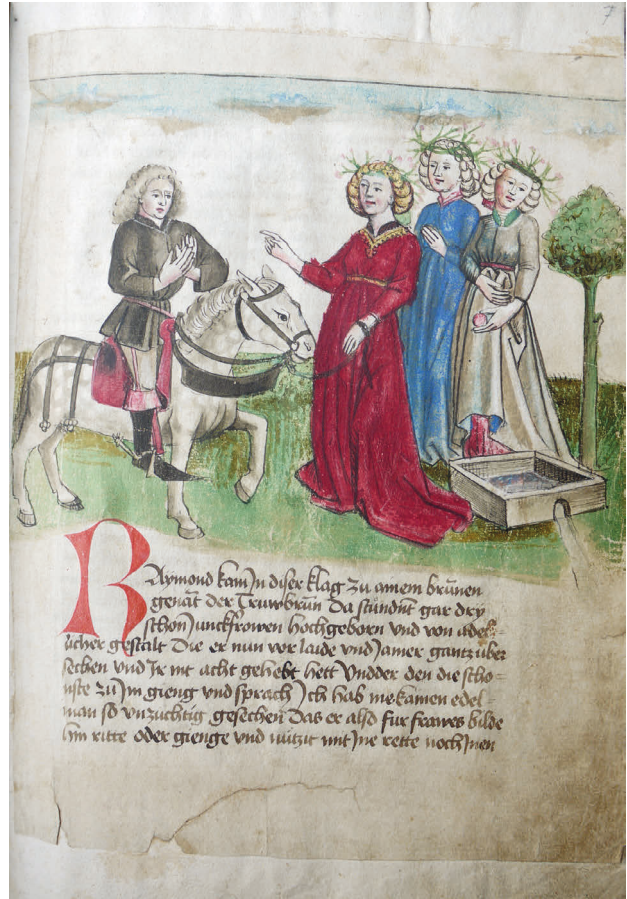 7
RAymond kam jn diser klag zu ainem brunen
genant der Turstbrun Da stundent gar dry
schon junckfrowen hochgeborn vnd von adel=
icher gestalt Die er nun vor laide vnd jamer gantz über
sechen vnd jr nit acht gehebt hett Vndder den die scho=
nste zu jm gieng vnd sprach jch hab nie kainen edel
man so vnzuchtig gesechen Das er also fur frawes bilde
hin ritte oder gienge vnd nützit mit jne rette noch jnen